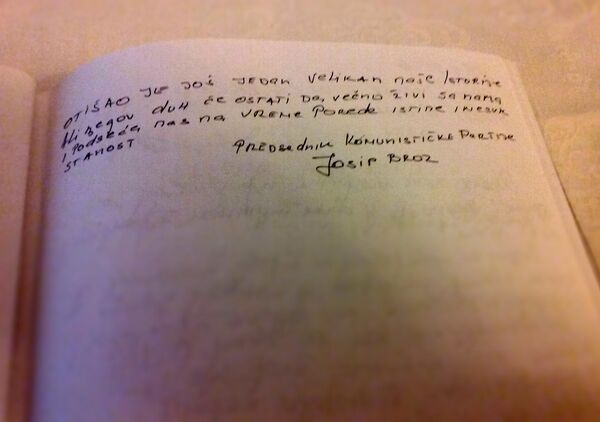 OTIŠAO JE JOŠ JEDAN VELIKAN NAŠE ISTORIJE
NJEGOV DUH ĆE OSTATI DA VEČNO ŽIVI SA NAMA
I PODSEĆA NAS NA VREME POBEDE ISTINE I NESVR
STANOST
PREDSEDNIK KOMUNISTIČKE PARTIJE
JOSIP BROZ